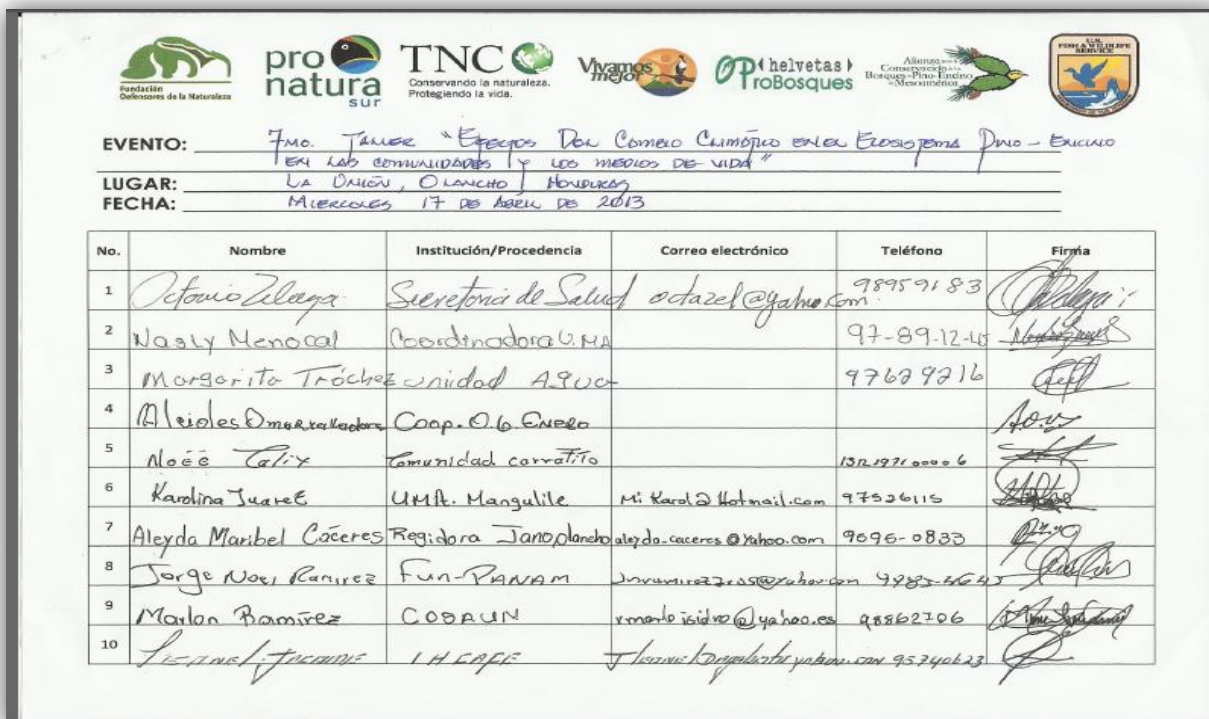 Fundación
Defensores de la Naturaleza
pro
natura
sur
TNC
Conservando la naturaleza.
Protegiendo la vida.
Vivamos
mejor
helvetas
ProBosques
Alianza para la
Conservación de los
Bosques de Pino-Encino
de Mesoamérica
U.S.
FISH & WILDLIFE
SERVICE
EVENTO: 7mo. TALLER "EFECTOS DEL CAMBIO CLIMÁTICO EN EL ECOSISTEMA PINO - ENCINO
EN LAS COMUNIDADES Y LOS MEDIOS DE VIDA"
LUGAR: LA UNIÓN, OLANCHO, HONDURAS
FECHA: MIERCOLES 17 DE ABRIL DE 2013
No. Nombre Institución/Procedencia Correo electrónico Teléfono Firma
1 Octavio Zelaya Secretoria de Salud octazel@yahoo.com 98959183
2 Nasly Menocal Coordinadora U.MA 97-89-12-45
3 Margarita Tróchez unidad Agua 97629216
4 Alcides Omar Coop. O.6 ENERO
5 Noéé Calix Comunidad carratito
6 Karolina Juarez UMA. Mangulile Mi Karol@Hotmail.com 97526115
7 Aleyda Maribel Cáceres Regidora Jano, olancho aleyda-caceres@yahoo.com 9696-0833
8 Jorge Noel Ramirez Fun-PANAM 9985-4645
9 Marlon Ramírez COSAUN rmarlo isidro@yahoo.es 98862706
10 IHCAFE 95740623